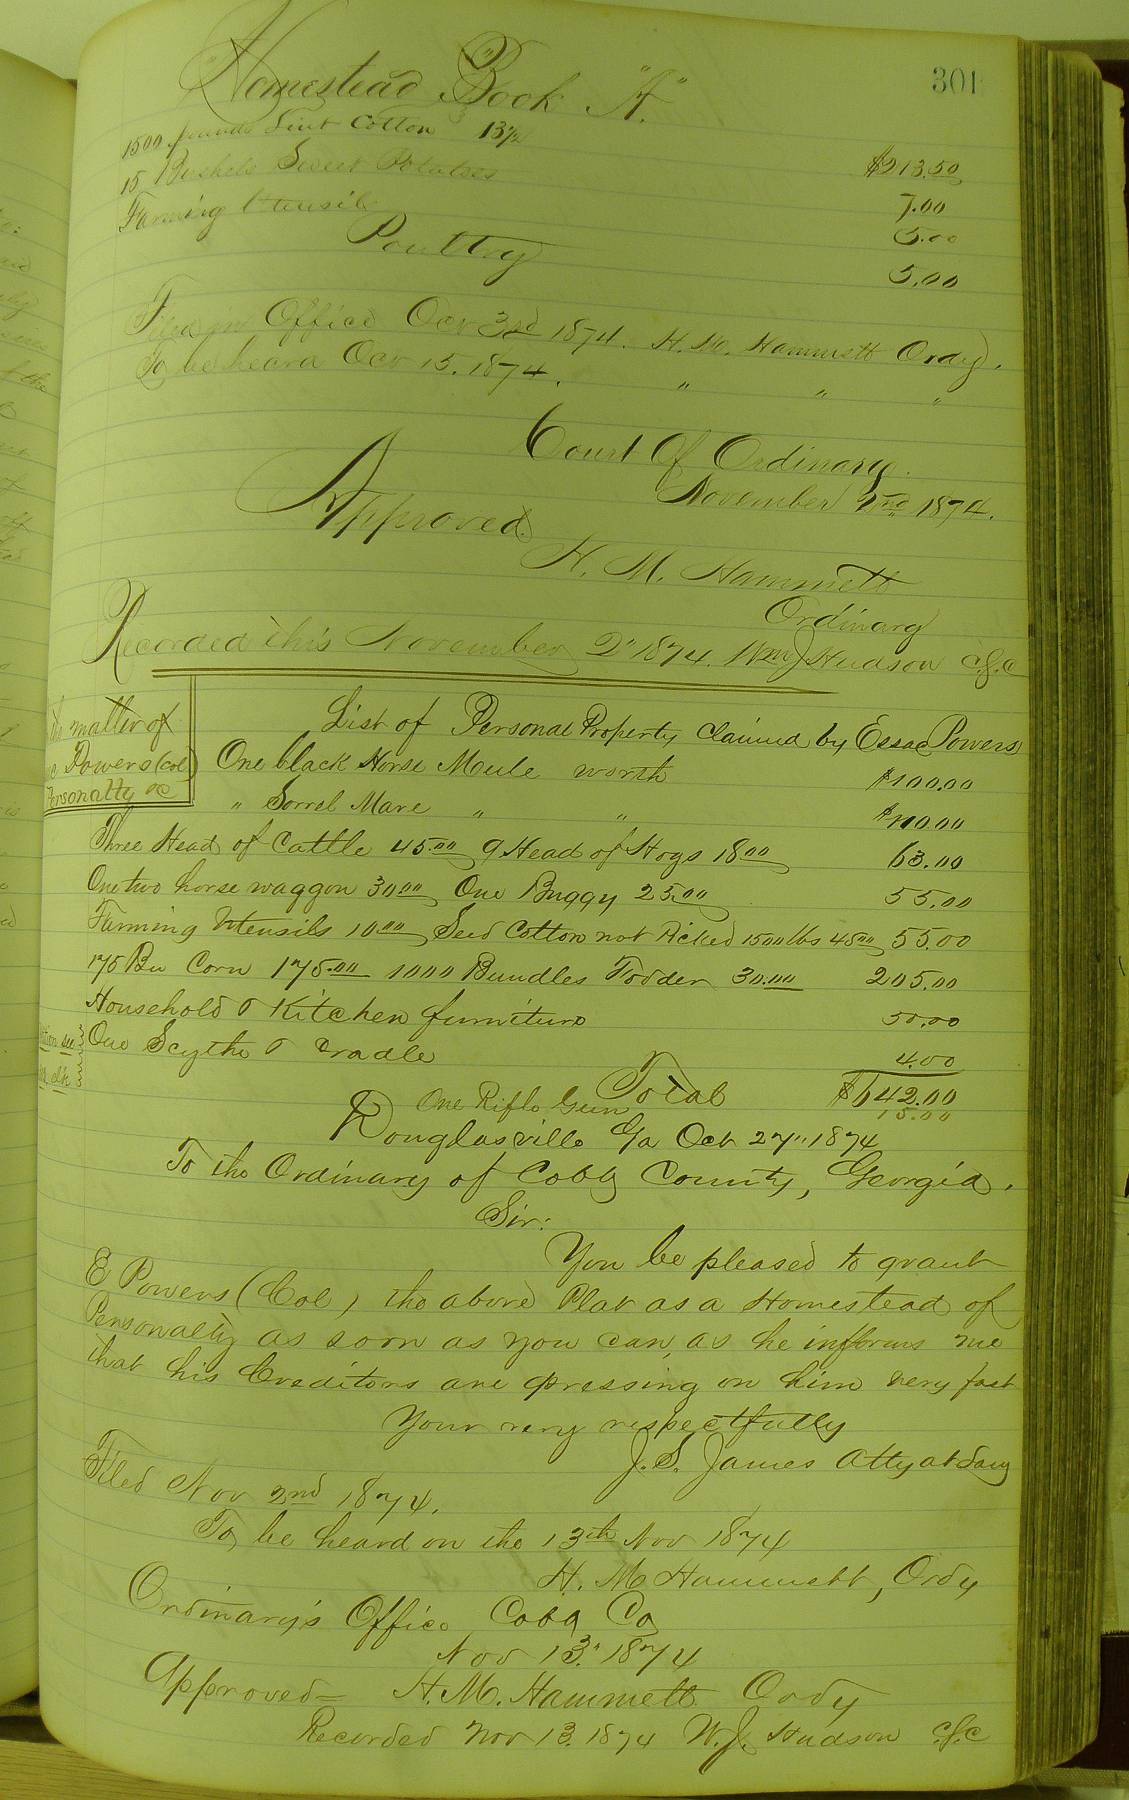 301
Homestead Book "A"
1500 pounds Lint Cotton 13½ $213.50
15 Bushels Sweet Potatoes 7.00
Farming Utensils 5.00
Poultry 5.00
Filed in Office Oct 3rd 1874. H. M. Hammett Ordy.
To be heard Oct 15. 1874. " " "
Court Of Ordinary.
November 2nd 1874.
Approved
H. M. Hammett
Ordinary
Recorded this November 2" 1874. Wm J Hudson C.S.C
the matter of
Powers (Col)
Personalty &c
List of Personal Property claimed by Essac Powers
One black Horse Mule worth $100.00
" Sorrel Mare " " $110.00
Three Head of Cattle 45.00 9 Head of Hogs 18.00 63.00
One two horse waggon 30.00 One Buggy 25.00 55.00
Farming Utensils 10.00 Seed Cotton not Picked 1500 lbs 45.00 55.00
175 Bu Corn 175.00 1000 Bundles Fodder 30.00 205.00
Household & Kitchen furniture 50.00
One Scythe & Cradle 4.00
Total $642.00
One Rifle Gun 15.00
Douglasville Ga Oct 27" 1874
To the Ordinary of Cobb County, Georgia.
Sir:
You be pleased to grant
E Powers (Col) the above Plat as a Homestead of
Personalty as soon as you can, as he informs me
that his Creditors are pressing on him very fast
Your very respectfully
J. S. James Atty at Law
Filed Nov 2nd 1874.
To be heard on the 13th Nov 1874
H. M. Hammett, Ordy
Ordinary's Office Cobb Co
Nov 13" 1874
Approved= H. M. Hammett Ordy
Recorded Nov 13. 1874 W. J. Hudson C.S.C